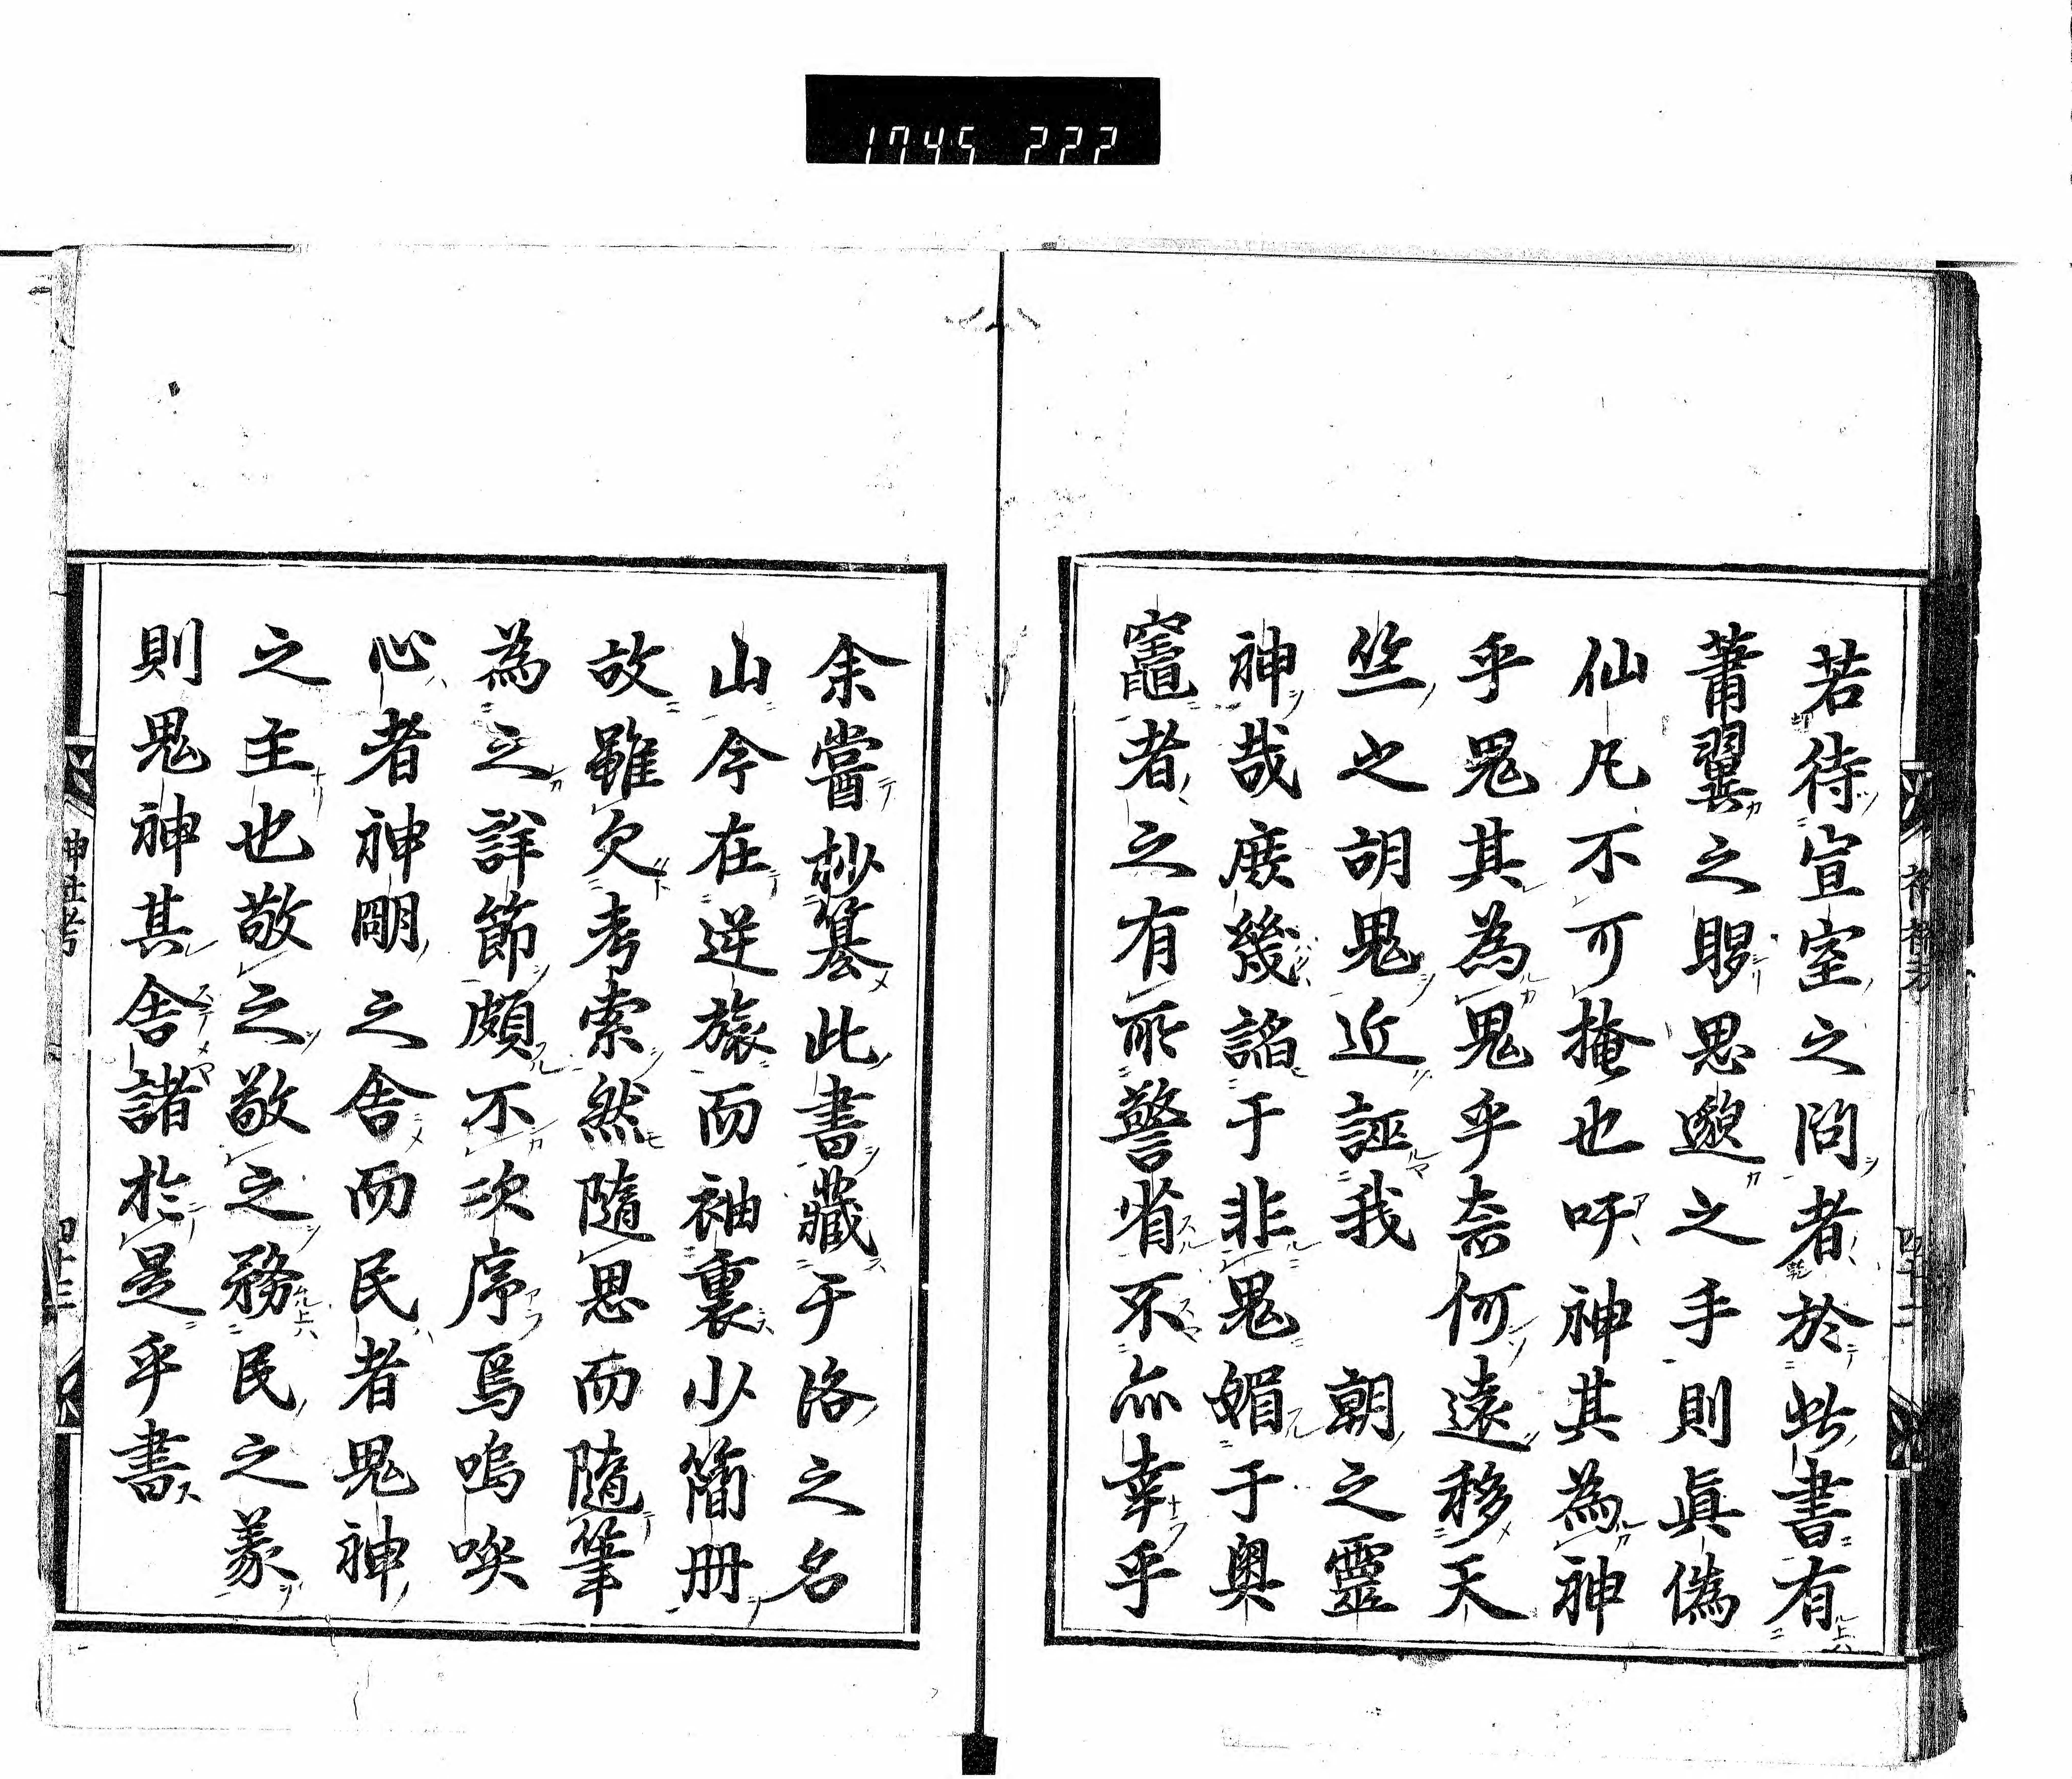 1745 222
若待宣室之問者於此書有
莆翼之助思邈之手則眞僞
仙凡不可掩也吁神其為神
乎鬼其為鬼乎奈何遠移天
竺之胡鬼近誣我 朝之靈
神哉庻幾諂于非鬼媚于奥
竈者之有所警省不亦幸乎
神社考
余嘗抄纂此書藏于洛之名
山今在逆旅而袖裏少簡册
故雖欠考索然隨思而隨筆
為之詳節頗不次序焉嗚唉
心者神明之舎而民者鬼神
之主也敬之敬之務民之義
則鬼神其舎諸於是乎書
神社考
四十三